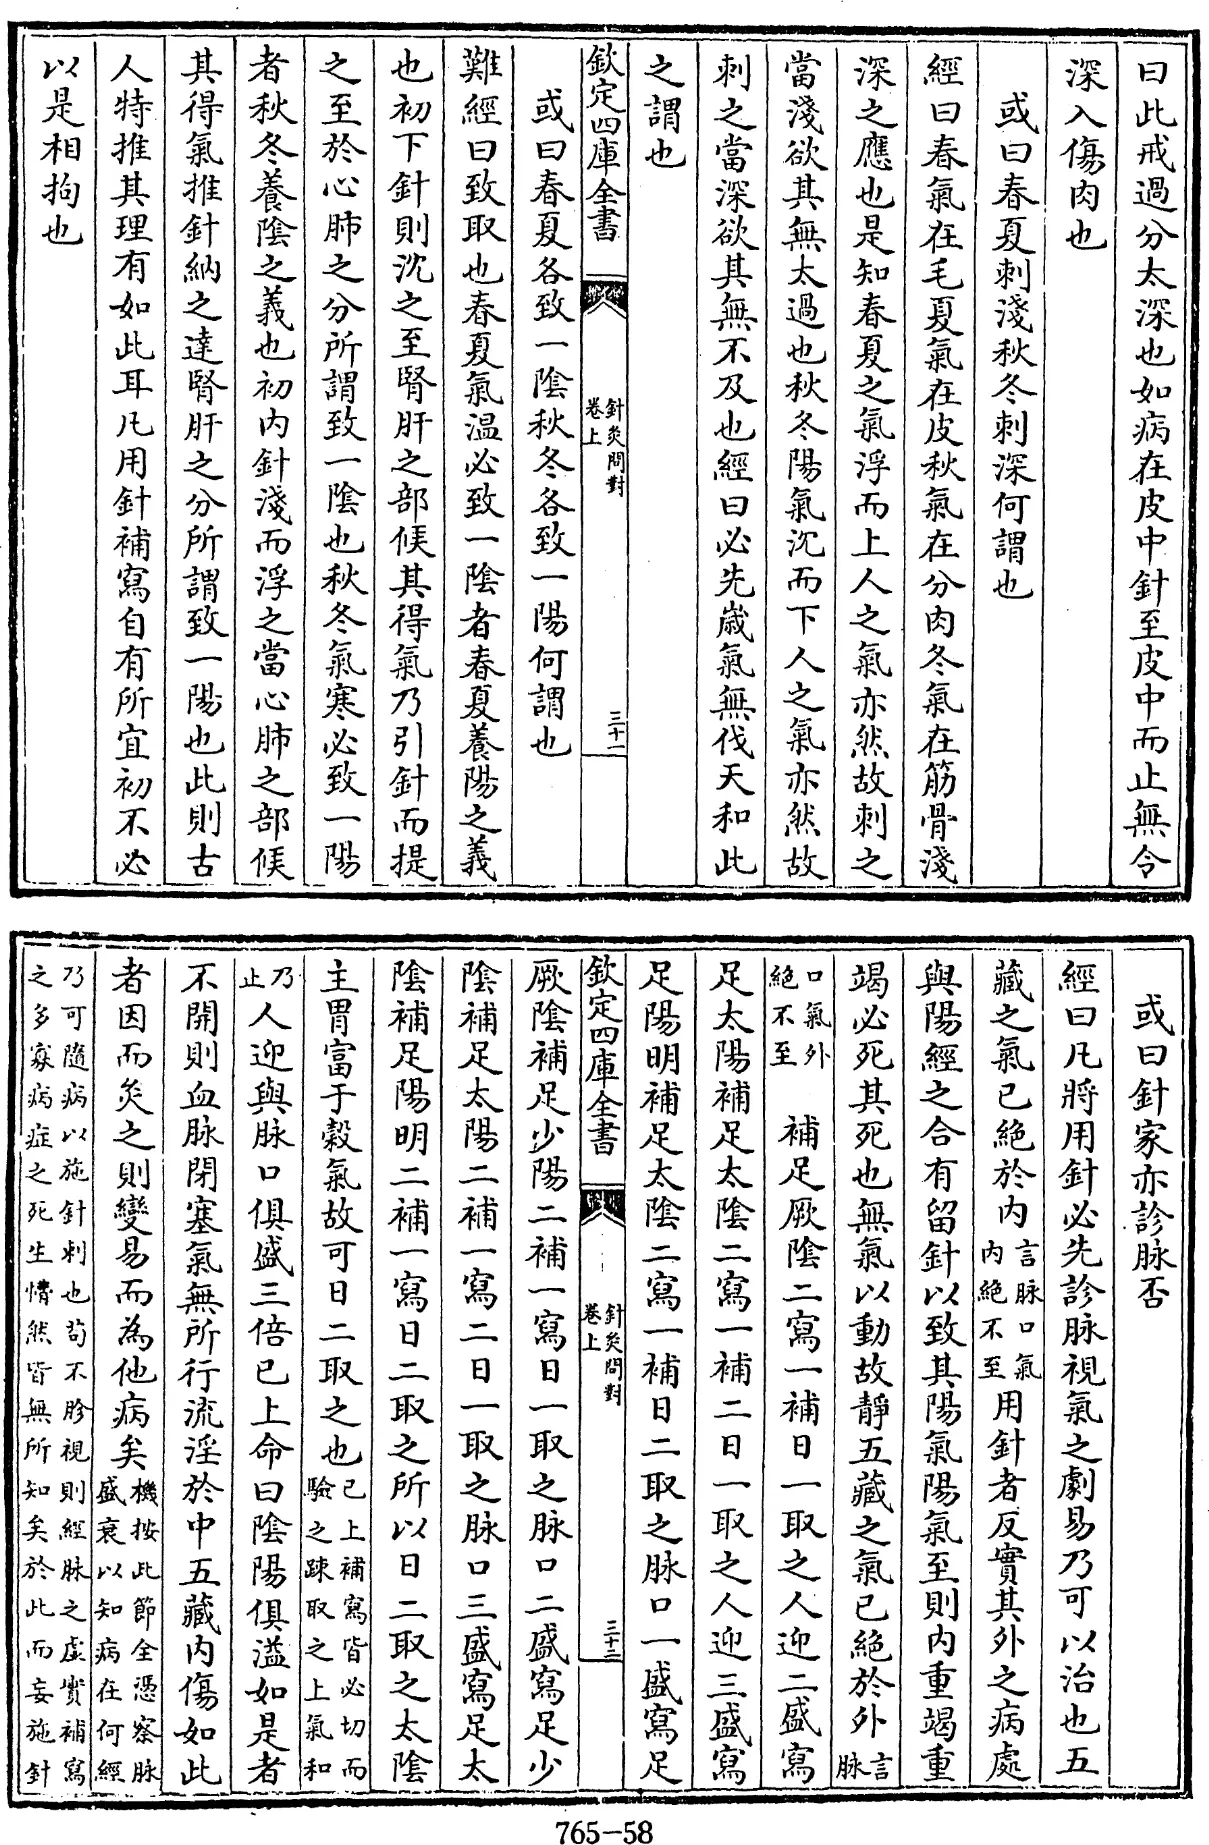 曰此戒過分太深也如病在皮中針至皮中而止無令
深入傷肉也
或曰春夏刺淺秋冬刺深何謂也
經曰春氣在毛夏氣在皮秋氣在分肉冬氣在筋骨淺
深之應也是知春夏之氣浮而上人之氣亦然故刺之
當淺欲其無太過也秋冬陽氣沉而下人之氣亦然故
刺之當深欲其無不及也經曰必先歲氣無伐天和此
之謂也
欽定四庫全書
針灸問對
卷上
三十一
或曰春夏各致一陰秋冬各致一陽何謂也
難經曰致取也春夏氣温必致一陰者春夏養陽之義
也初下針則沉之至腎肝之部候其得氣乃引針而提
之至於心肺之分所謂致一陰也秋冬氣寒必致一陽
者秋冬養陰之義也初内針淺而浮之當心肺之部候
其得氣推針納之達腎肝之分所謂致一陽也此則古
人特推其理有如此耳凡用針補寫自有所宜初不必
以是相拘也
或曰針家亦診脉否
經曰凡將用針必先診脉視氣之劇易乃可以治也五
藏之氣已絶於内言脉口氣内絶不至用針者反實其外之病處
與陽經之合有留針以致其陽氣陽氣至則内重竭重
竭必死其死也無氣以動故靜五藏之氣已絶於外言脉
口氣外絶不至補足厥陰二寫一補日一取之人迎二盛寫
足太陽補足太陰二寫一補二日一取之人迎三盛寫
足陽明補足太陰二寫一補日二取之脉口一盛寫足
欽定四庫全書
針灸問對
卷上
三十二
厥陰補足少陽二補一寫日一取之脉口二盛寫足少
陰補足太陽二補一寫二日一取之脉口三盛寫足太
陰補足陽明二補一寫日二取之所以日二取之太陰
主胃富于穀氣故可日二取之也已上補寫皆必切而驗之踈取之上氣和
乃止人迎與脉口俱盛三倍已上命曰陰陽俱溢如是者
不開則血脉閉塞氣無所行流淫於中五藏内傷如此
者因而灸之則變易而為他病矣機按此節全憑察脉盛衰以知病在何經
乃可隨病以施針刺也苟不胗視則經脉之虛實補寫
之多寡病症之死生懵然皆無所知矣於此而妄施針
765-58